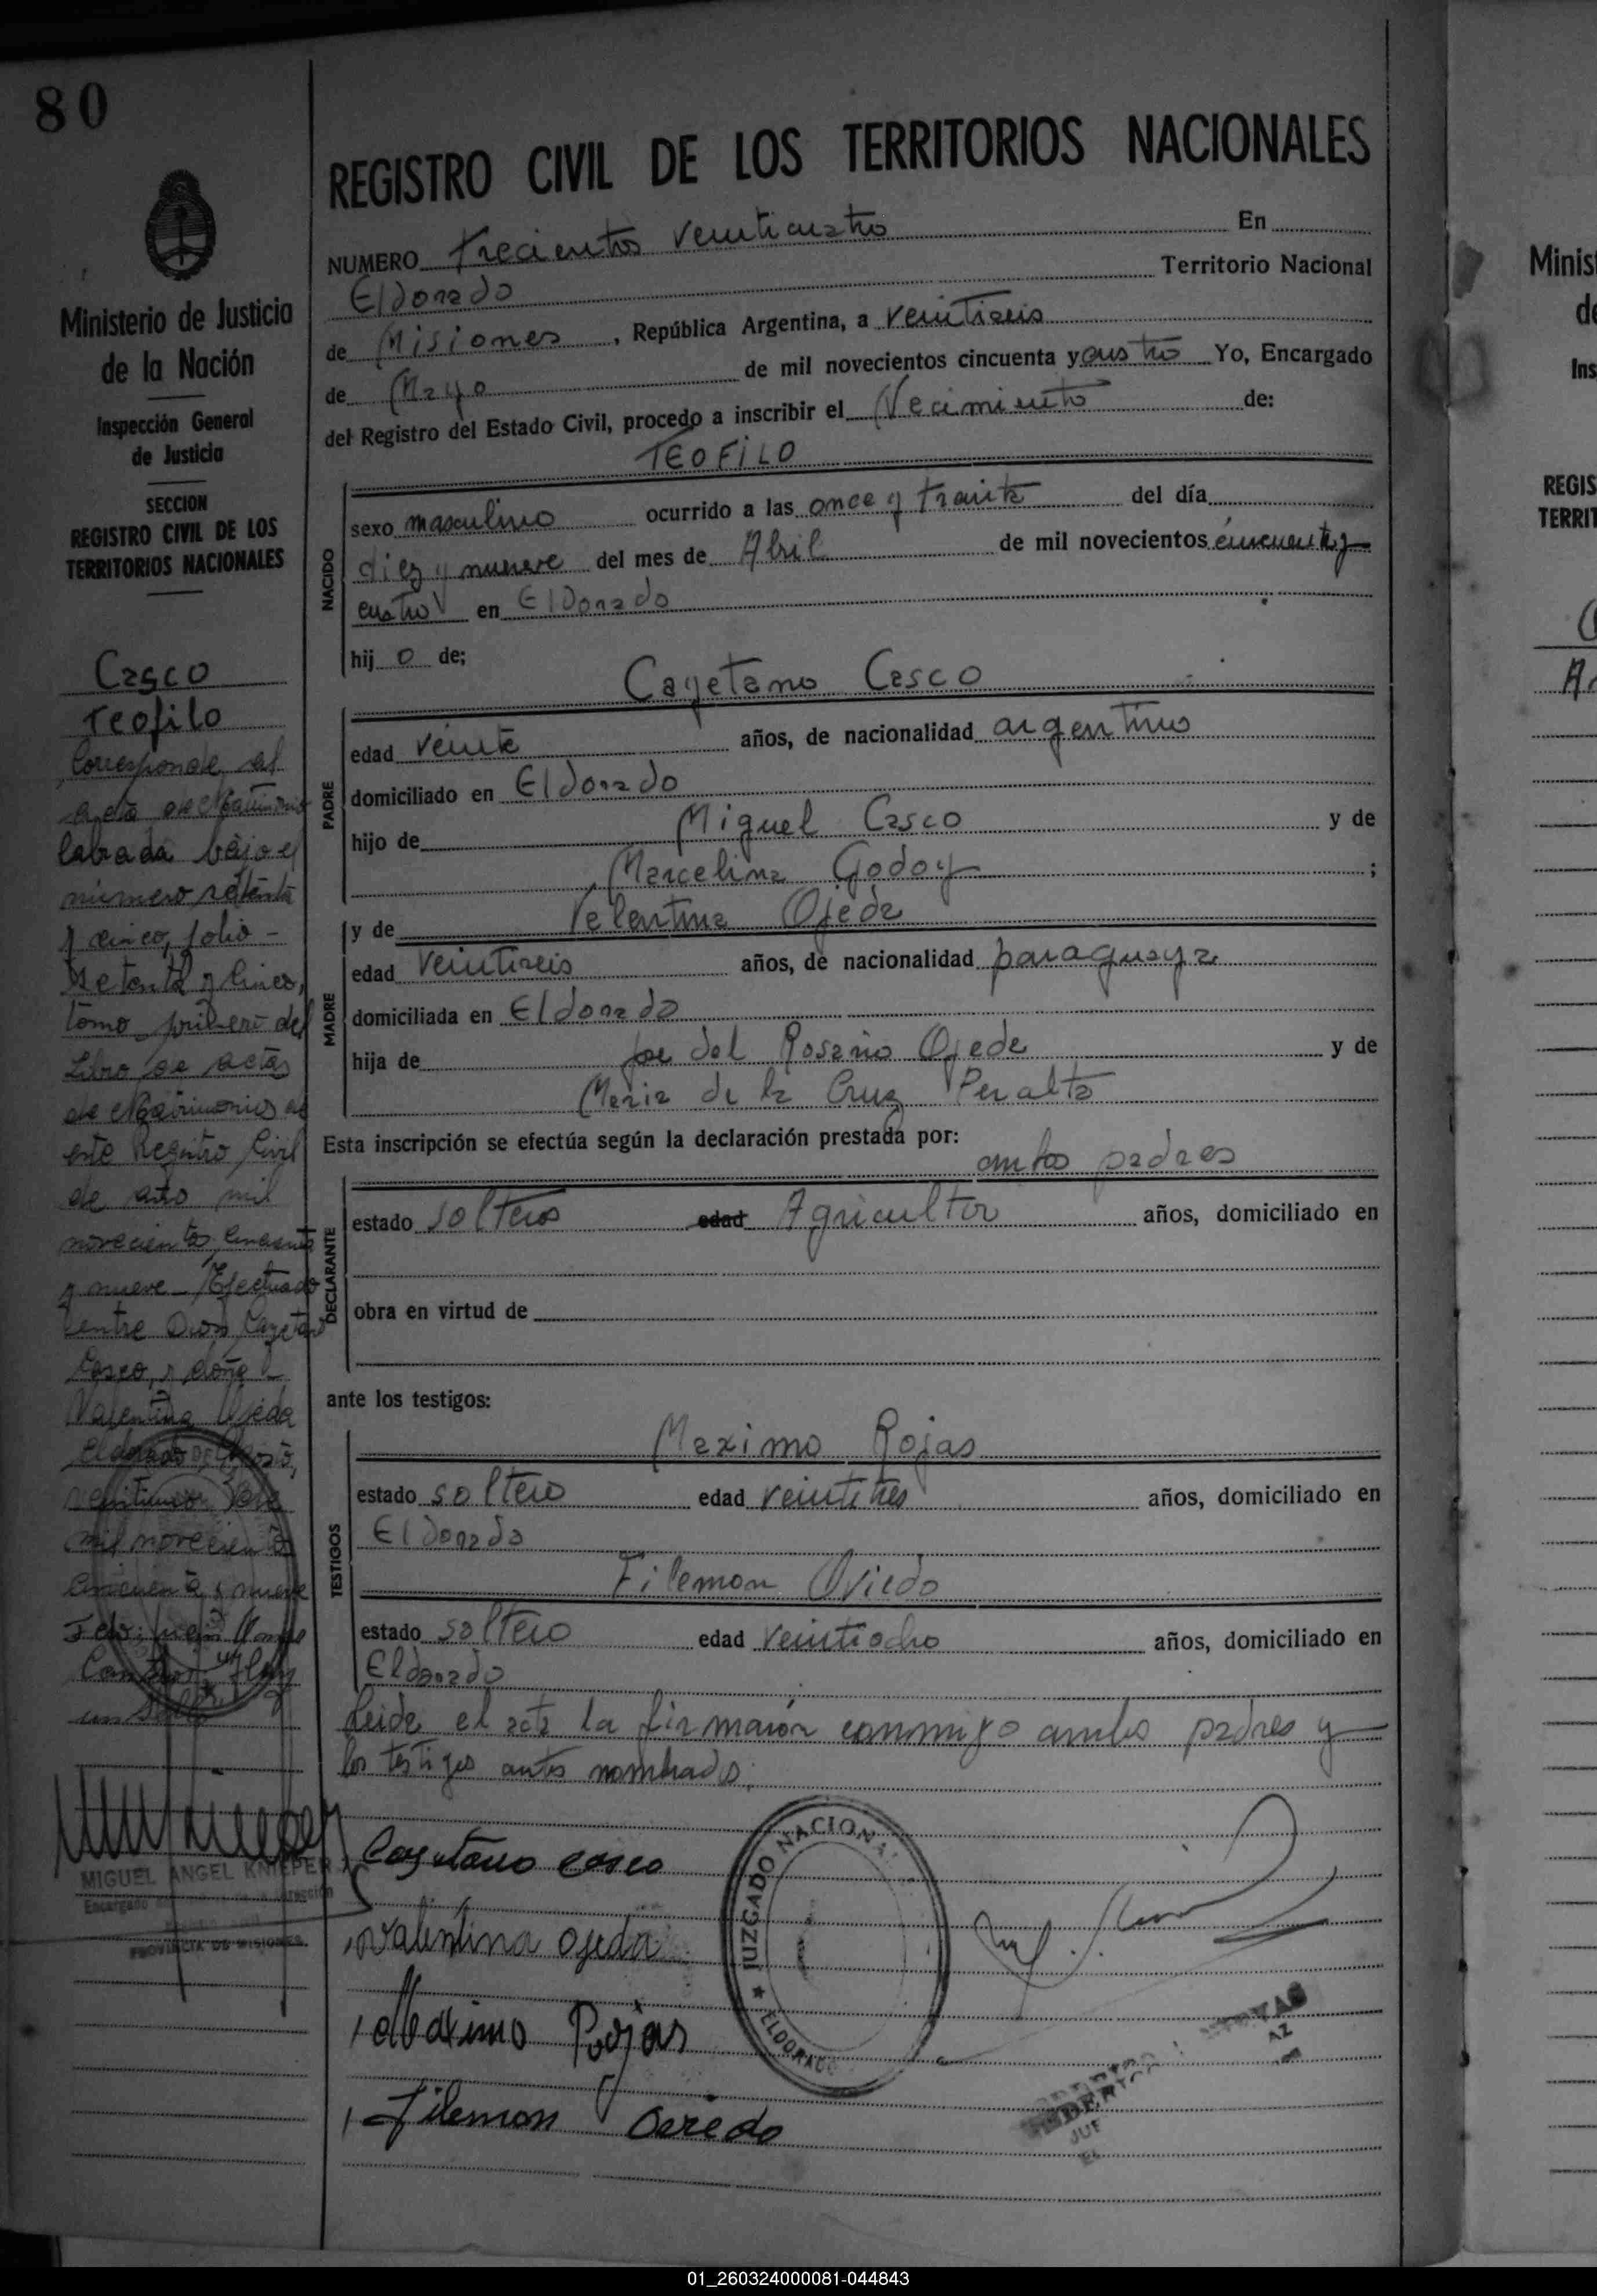 80
Ministerio de Justicia
de la Nación
Inspección General
de Justicia
SECCION
REGISTRO CIVIL DE LOS
TERRITORIOS NACIONALES
Casco
Teofilo
Corresponde al
acta de Matrimonio
labrada bajo el
número setenta
y cinco, folio -
setenta y cinco,
tomo primero del
Libro de actas
de Matrimonios de
este Registro Civil
de año mil
novecientos cincuenta
y nueve - Efectuado
entre Don Cayetano
Casco, y doña
Valentina Ojeda
Eldorado,
mil novecientos
cincuenta y nueve
Fdo: Juan
Hay
un sello
MIGUEL ANGEL KNIEPER
Encargado
PROVINCIA DE MISIONES
REGISTRO CIVIL DE LOS TERRITORIOS NACIONALES
NUMERO trecientos veinticuatro En
Eldorado Territorio Nacional
de Misiones, República Argentina, a veintiseis
de Mayo de mil novecientos cincuenta y cuatro Yo, Encargado
del Registro del Estado Civil, procedo a inscribir el Nacimiento de:
TEOFILO
NACIDO
sexo masculino ocurrido a las once y trainta del día
diez y nueve del mes de Abril de mil novecientos cincuenta y
cuatro en Eldorado
hij o de;
Cayetano Casco
PADRE
edad veinte años, de nacionalidad argentino
domiciliado en Eldorado
hijo de Miguel Casco y de
Marcelina Godoy ;
y de Valentina Ojeda
MADRE
edad veintiseis años, de nacionalidad paraguaya
domiciliada en Eldorado
hija de Jose del Rosario Ojeda y de
Maria de la Cruz Peralta
Esta inscripción se efectúa según la declaración prestada por:
ambos padres
DECLARANTE
estado solteros edad Agricultor años, domiciliado en
obra en virtud de
ante los testigos:
Maximo Rojas
TESTIGOS
estado soltero edad veintitres años, domiciliado en
Eldorado
Filemon Oviedo
estado soltero edad veintiocho años, domiciliado en
Eldorado
Leida el acta la firmaron conmigo ambos padres y
los testigos antes nombrados.
Cayetano Casco
Valentina Ojeda
Maximo Rojas
Filemon Oviedo
JUZGADO NACIONAL
★ ELDORADO
Minis
de
Ins
REGIS
TERRIT
01_260324000081-044843